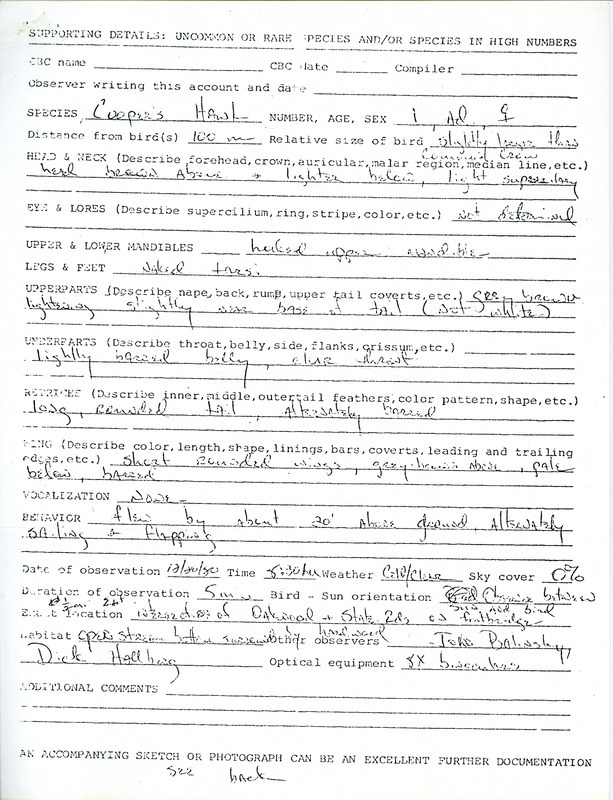 SUPPORTING DETAILS: UNCOMMON OR RARE SPECIES AND/OR SPECIES IN HIGH NUMBERS
CBC name CBC date Compiler
Observer writing this account and date
SPECIES Cooper's Hawk NUMBER, AGE, SEX 1, Ad, ♀
Distance from bird(s) 100 m Relative size of bird slightly larger than
Common Crow
HEAD & NECK (Describe forehead,crown,auricular,malar region,median line,etc.)
head brown above & lighter below, light superciliary
EYE & LORES (Describe supercilium,ring,stripe,color,etc.) Not determined
UPPER & LOWER MANDIBLES hooked upper mandible
LEGS & FEET Naked tarsi
UPPERPARTS (Describe nape,back,rump,upper tail coverts,etc.) grey brown
lightening slightly near base of tail (Not white)
UNDERPARTS (Describe throat,belly,side,flanks,crissum,etc.)
lightly barred belly, clear throat
RETRICES (Describe inner,middle,outertail feathers,color pattern,shape,etc.)
long, rounded tail, alternately barred
WING (Describe color,length,shape,linings,bars,coverts,leading and trailing
edges,etc.) short rounded wings, grey-brown above, pale
below, barred
VOCALIZATION None
BEHAVIOR flew by about 20' above ground, alternately
sailing & flapping
Date of observation 12/20/80 Time 8:30 Weather Cold/Clear Sky cover 0%
Duration of observation 5 m Bird - Sun orientation Observer between
sun and bird
Exact location intersection of Oakwood & State Rds on footbridge
Habitat open stream bottom surrounded by hardwood other observers
Dick Optical equipment 8X binoculars
ADDITIONAL COMMENTS
AN ACCOMPANYING SKETCH OR PHOTOGRAPH CAN BE AN EXCELLENT FURTHER DOCUMENTATION
see back